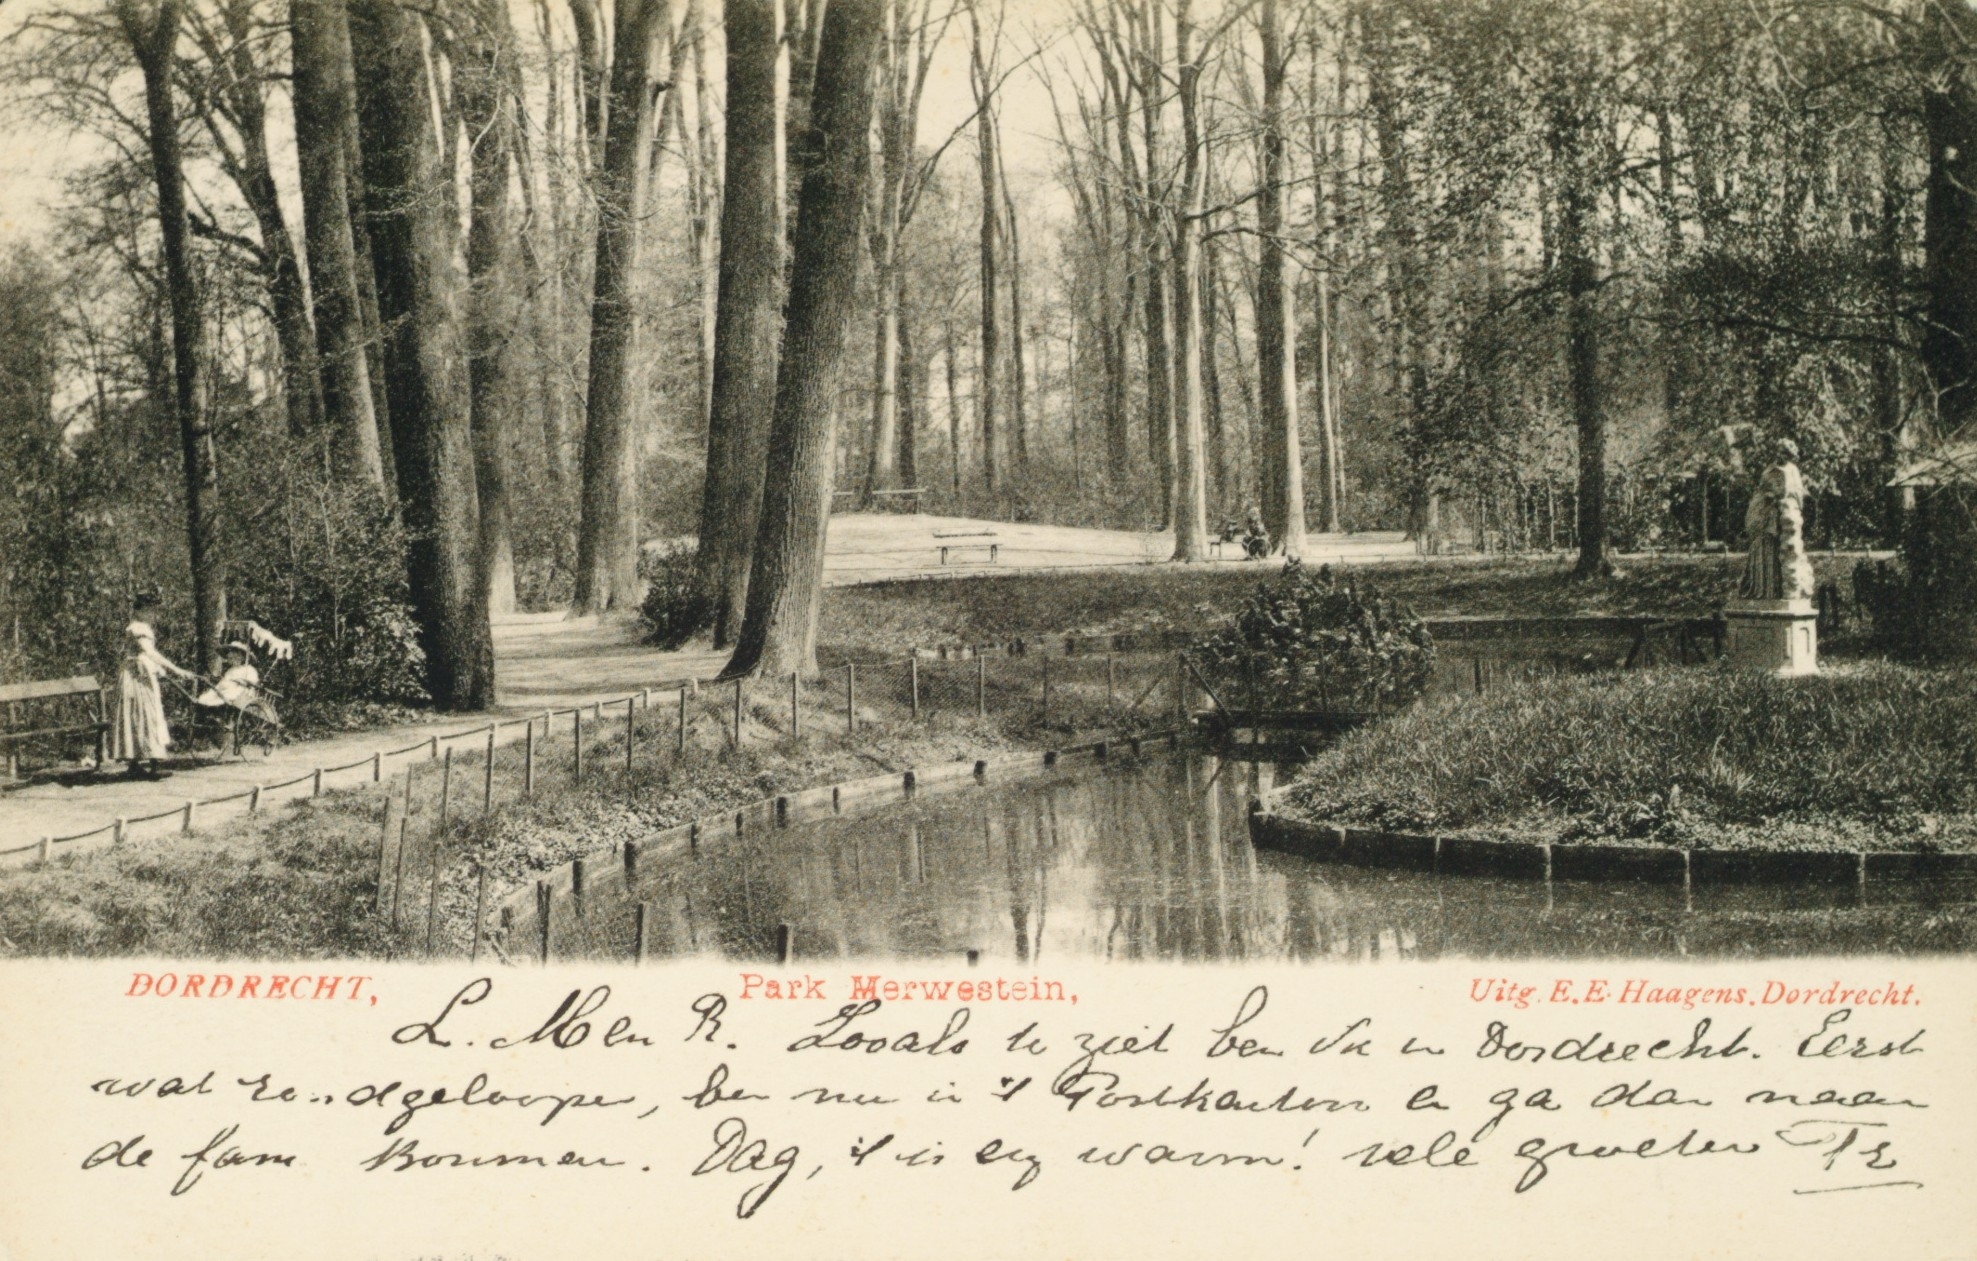 DORDRECHT, Park Merwestein, Uitg. E.E. Haagens. Dordrecht.
L. M en R. Zooals te ziet ben in Dordrecht. Eerst
wat rondgeloopen, ben nu in 't Postkantoor en ga dan naar
de fam Bouman. Dag, 't is erg warm! vele groeten